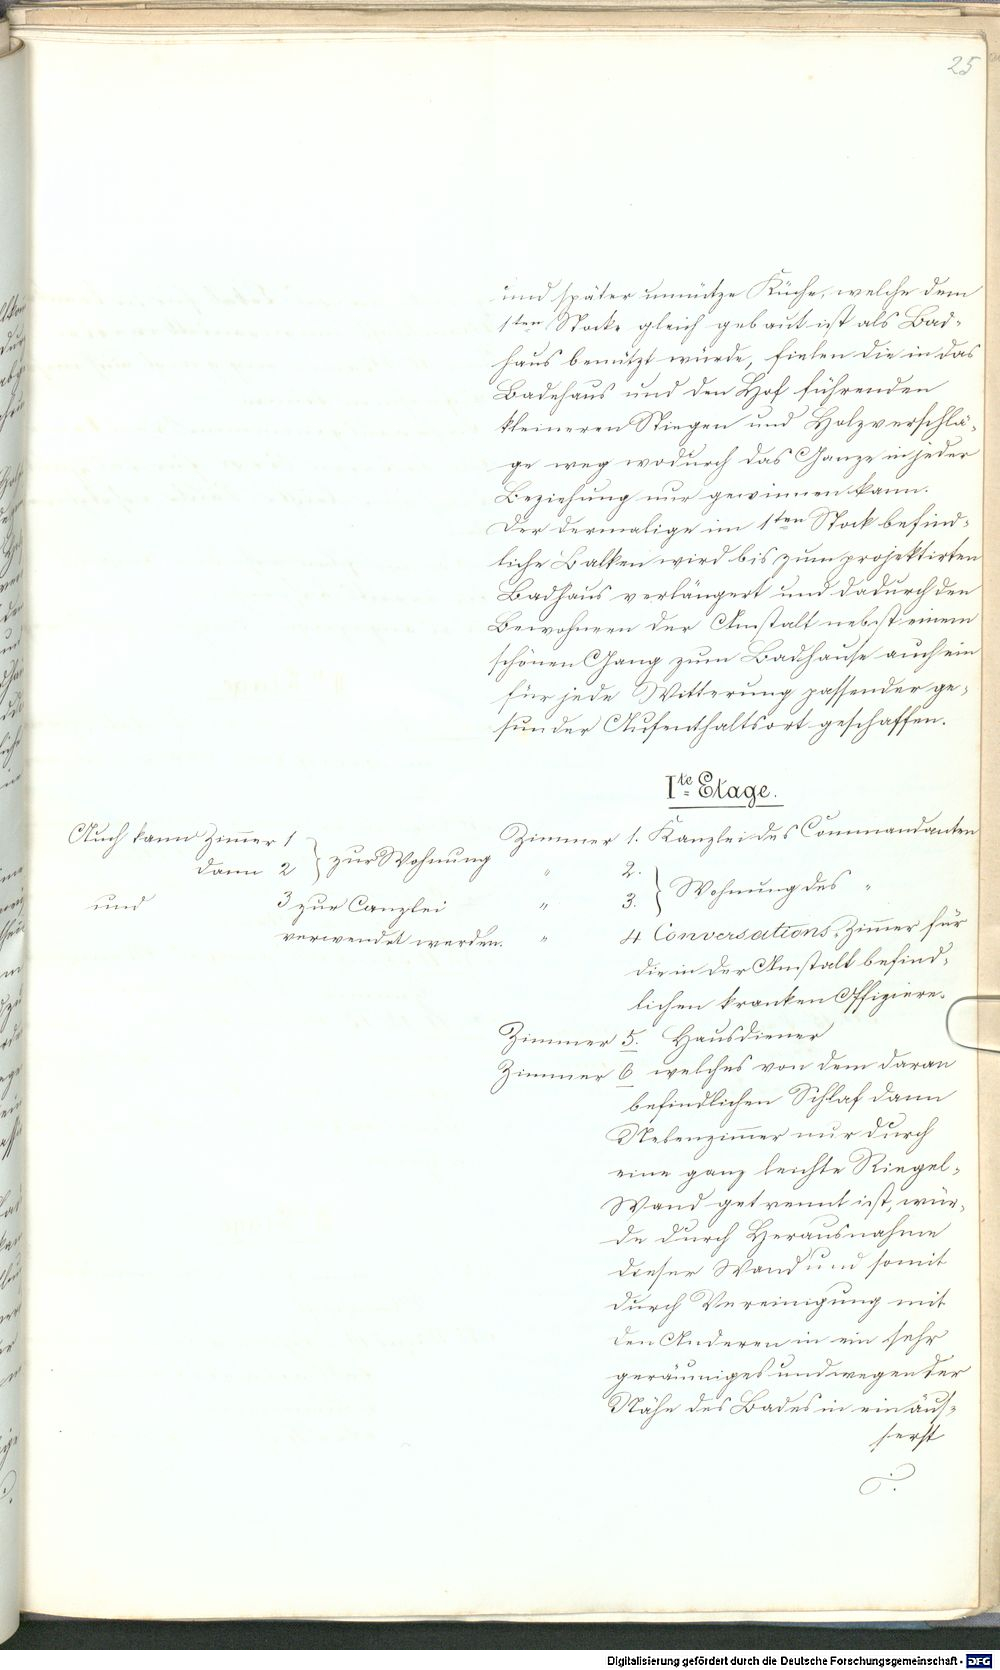 25
und später unnütze Küche, welche dem
1ten Stocke gleich gebaut ist als Bad-
haus benützt würde, fielen die in das
Badehaus und den Hof führenden
kleineren Stiegen und Holzverschlä-
ge weg wodurch das Ganze in jeder
Beziehung nur gewinnen kann.
Der dermalige im 1ten Stock befind-
liche Balken wird bis zum projektirten
Badhaus verlängert und dadurch den
Bewohnern der Anstalt nebst einem
schönen Gang zum Badhause auch ein
für jede Witterung passender ge-
sunder Aufenthaltsort geschaffen.
Ite Etage.
Auch kann Zimer 1
dann 2 } zur Wohnung
und 3 zur Canzlei
verwendet werden.
Zimmer 1. Kanzlei des Commandanten
" 2.
" 3. } Wohnung des "
" 4 Conversations-Zimer für
die in der Anstalt befind-
lichen kranken Offiziere.
Zimmer 5. Hausdiener
Zimmer 6 welches von dem daran
befindlichen Schlaf dann
Nebenzimer nur durch
eine ganz leichte Riegel-
Wand getrennt ist, wür-
de durch Herausnahme
dieser Wand und somit
durch Vereinigung mit
den Anderen in ein sehr
geräumiges und wegen der
Nähe des Bades in ein äus-
serst
Digitalisierung gefördert durch die Deutsche Forschungsgemeinschaft - DFG